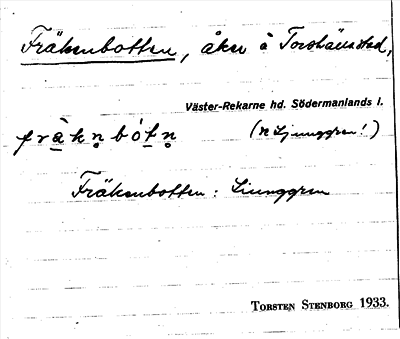 Fräkenbotten, åker å Torshäusstad,
Väster-Rekarne hd. Södermanlands l.
fràk̥n̥bót̥n̥ (n Ljunggren!)
Fräkenbotten: Ljunggren
TORSTEN STENBORG 1933.